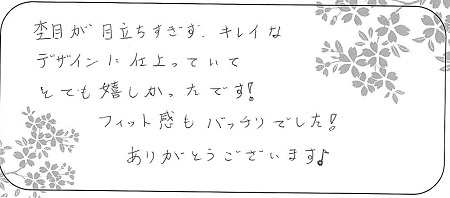 杢目が目立ちすぎず、キレイな
デザインに仕上っていて
とても嬉しかったです!
フィット感もバッチリでした!
ありがとうございます♪